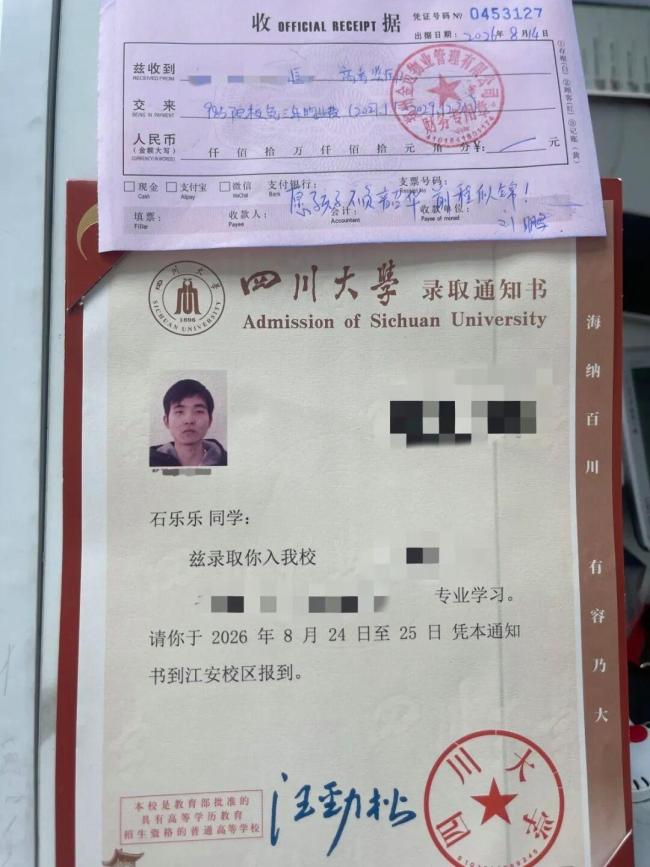 收 OFFICIAL RECEIPT 据
凭证号码 № 0453127
出据日期：2026年8月14日
兹收到
RECEIVED FROM
交 来
BEING IN PAYMENT
人民币
(金额大写)
CURRENCY(IN WORDS)
仟 佰 拾 万 仟 佰 拾 元 角 分 ¥： 元
现金 支付宝 微信 支付银行： 支票号码：
Cash Alipay Bank
愿孩子不负韶华 前程似锦！
填票： 收款人： 会计： 收款单位：
Filler Payee Accountant Payee of moned
财务专用章
四川大学 录取通知书
Admission of Sichuan University
四川大学
SICHUAN UNIVERSITY
1896
石乐乐 同学：
兹录取你入我校
专业学习。
请你于 2026 年 8 月 24 日至 25 日 凭本通知
书到江安校区报到。
海纳百川 有容乃大
本校是教育部批准的
具有高等学历教育
招生资格的普通高等学校
汪劲松
四川大学